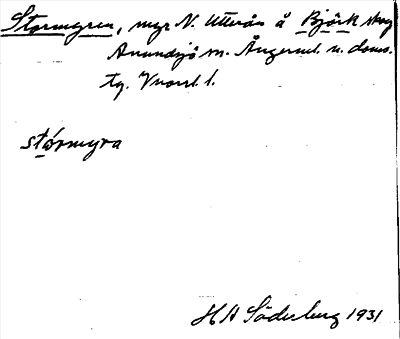 Stormyran, myr N. Utterån å Björk skog
Anundsjö sn. Ångerml. n. doms.
tg. Vnorrl. l.
stórmyra
H A Söderberg 1931